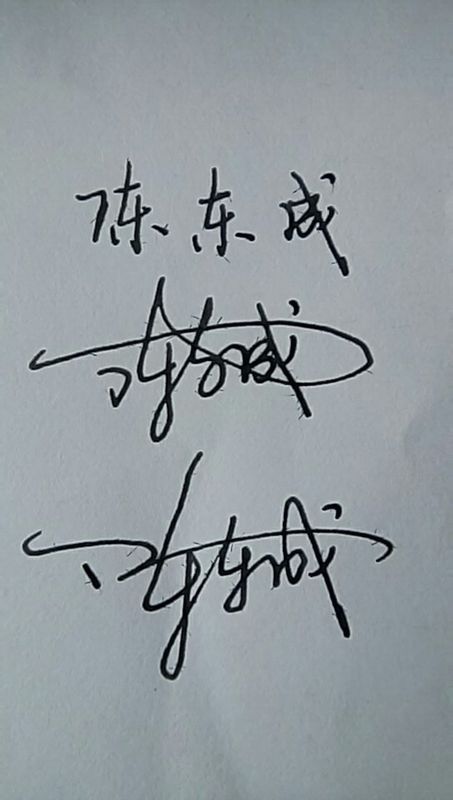 陈东成
陈东成
陈东成